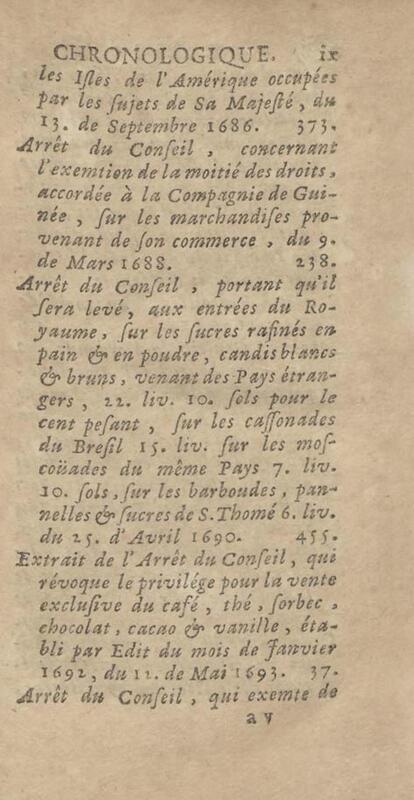 CHRONOLOGIQUE. ix
les Iſles de l'Amérique occupées
par les ſujets de Sa Majeſté, du
13. de Septembre 1686. 373.
Arrêt du Conſeil, concernant
l'exemtion de la moitié des droits,
accordée à la Compagnie de Gui-
née, ſur les marchandiſes pro-
venant de ſon commerce, du 9.
de Mars 1688. 238.
Arrêt du Conſeil, portant qu'il
ſera levé, aux entrées du Ro-
yaume, ſur les ſucres rafinés en
pain & en poudre, candis blancs
& bruns, venant des Pays étran-
gers, 22. liv. 10. ſols pour le
cent peſant, ſur les caſſonades
du Breſil 15. liv. ſur les moſ-
coüades du même Pays 7. liv.
10. ſols, ſur les barboudes, pan-
nelles & ſucres de S. Thomé 6. liv.
du 25. d'Avril 1690. 455.
Extrait de l'Arrêt du Conſeil, qui
révoque le privilége pour la vente
excluſive du café, thé, ſorbec,
chocolat, cacao & vanille, éta-
bli par Edit du mois de Janvier
1692, du 12. de Mai 1693. 37.
Arrêt du Conſeil, qui exemte de
a v